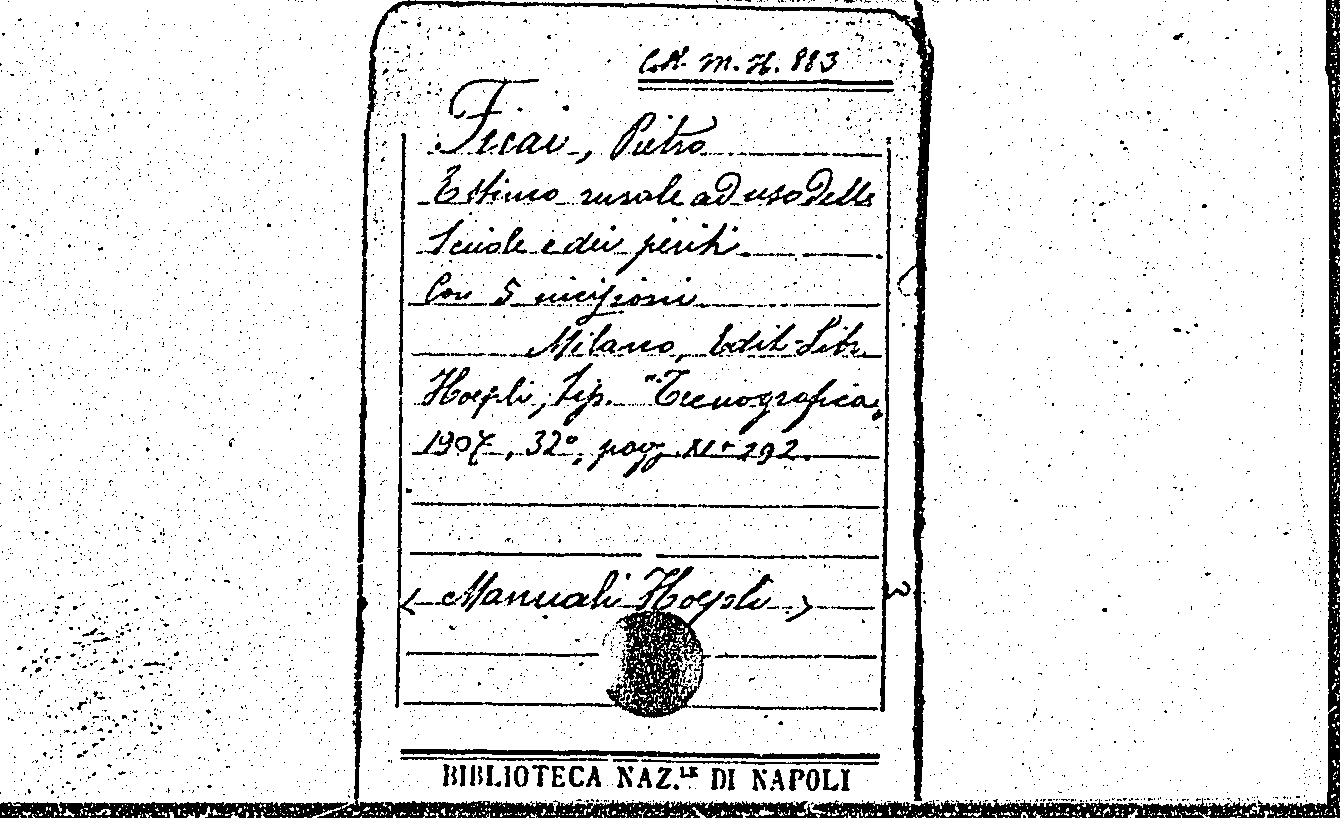 Coll. M. H. 883
Ficai, Pietro
Estimo rurale ad uso delle
Scuole e dei periti.
Con 5 incisioni
Milano, Edit-Libr.
Hoepli, tip. "Tecnografica"
1907, 32°, pag. XI+292.
< Manuali Hoepli >
BIBLIOTECA NAZ.LE DI NAPOLI